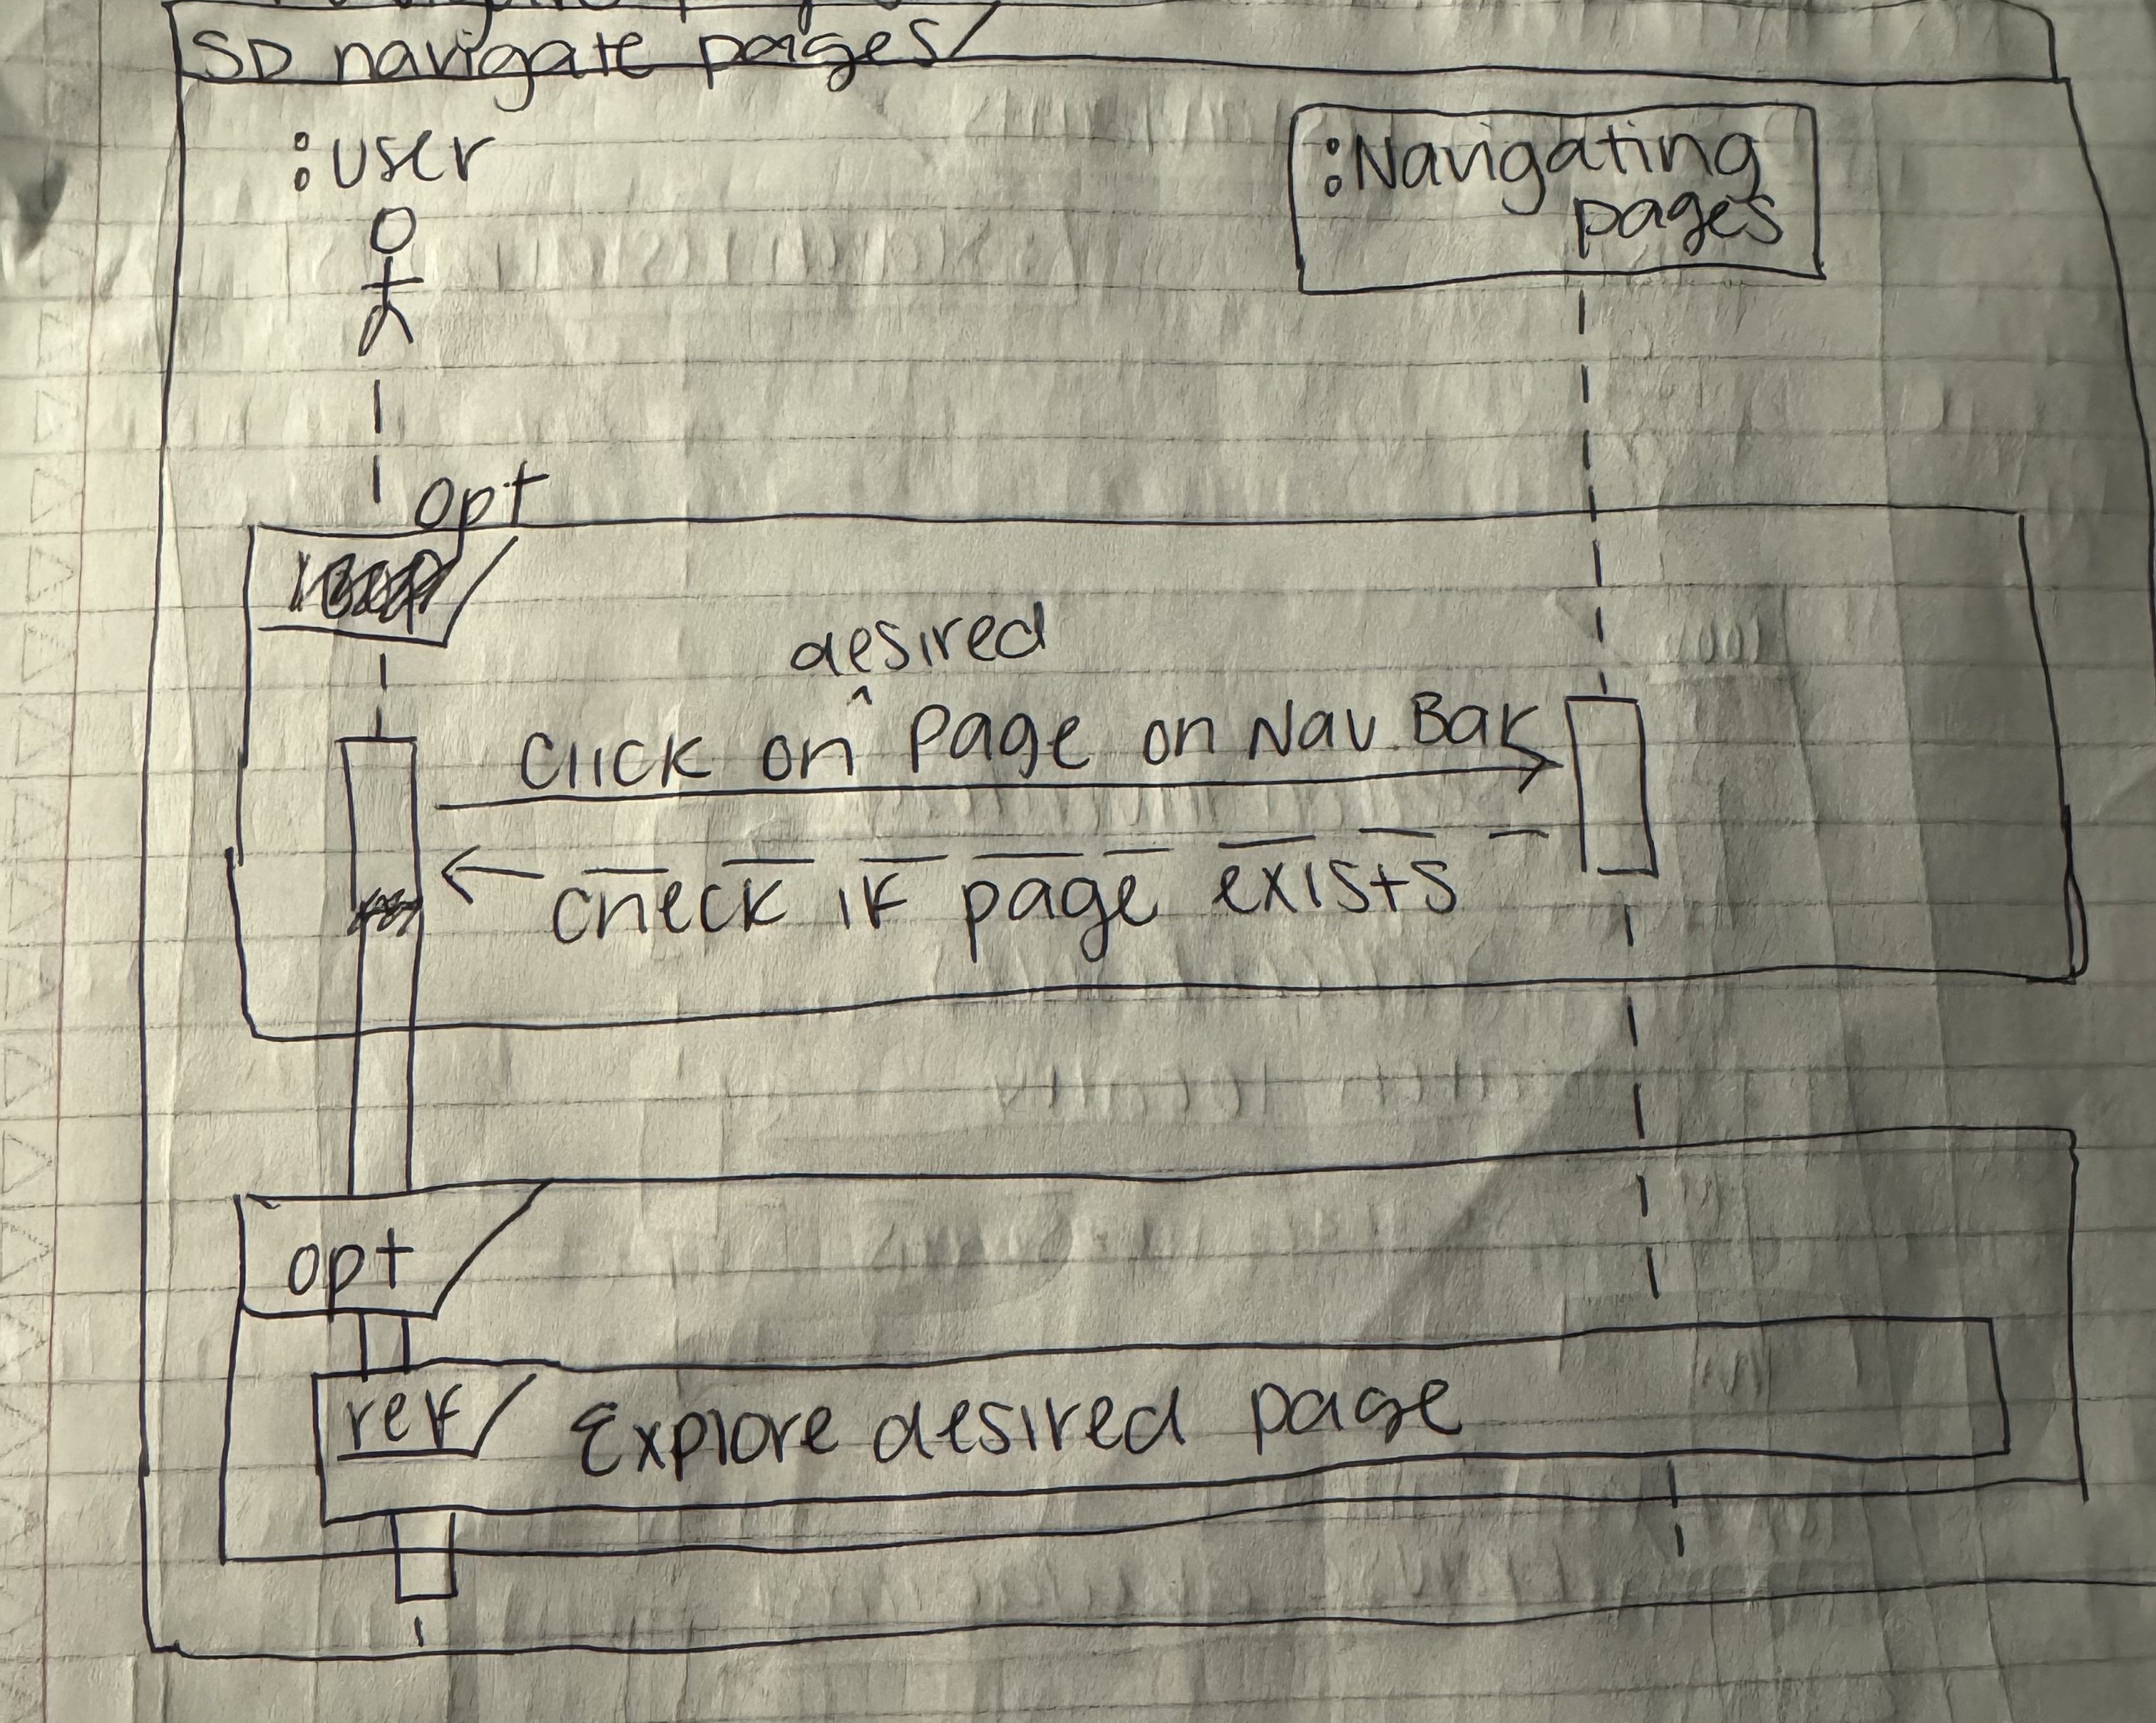 SD navigate pages
:user
:Navigating
pages
opt
desired
Click on ^ Page on Nav. Bar
check if page exists
opt
ref
Explore desired page